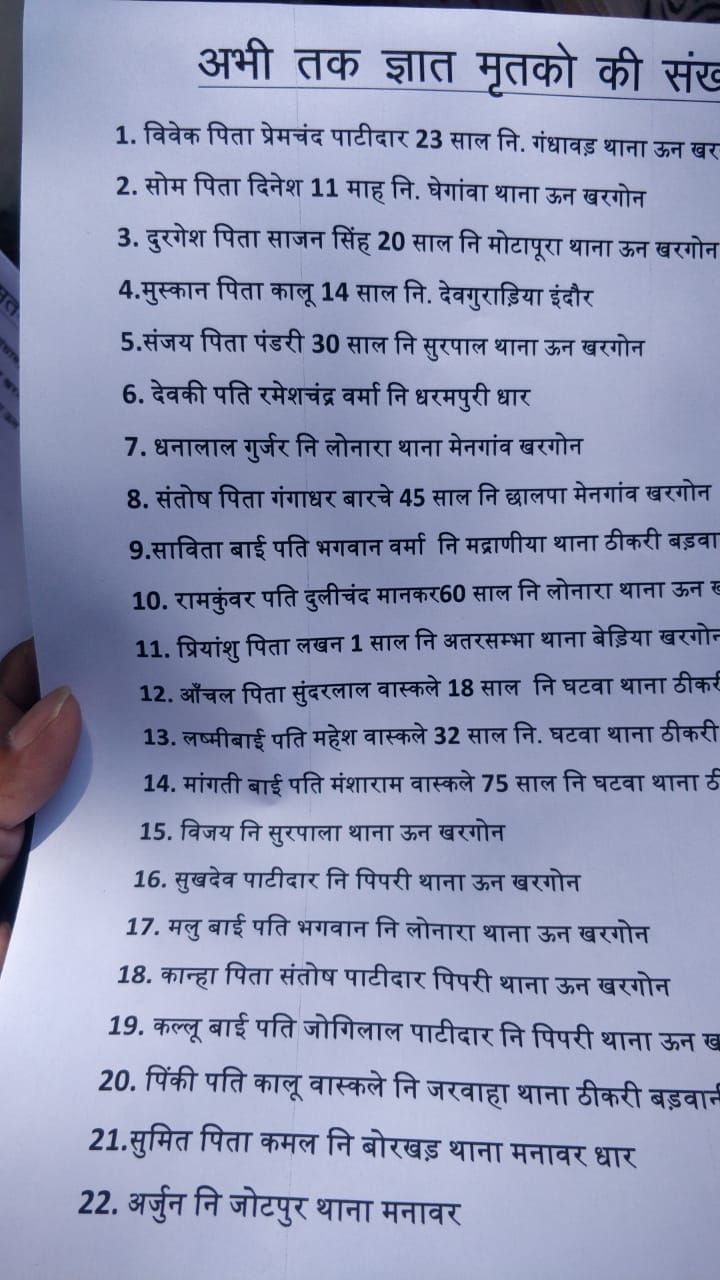 अभी तक ज्ञात मृतको की
1. विवेक पिता प्रेमचंद पाटीदार 23 साल नि. गंधावड़ थाना ऊन
2. सोम पिता दिनेश 11 माह नि. घेगांवा थाना ऊन खरगोन
3. दुरगेश पिता साजन सिंह 20 साल नि मोटापूरा थाना ऊन खरगोन
4.मुस्कान पिता कालू 14 साल नि. देवगुराड़िया इंदौर
5.संजय पिता पंडरी 30 साल नि सुरपाल थाना ऊन खरगोन
6. देवकी पति रमेशचंद्र वर्मा नि धरमपुरी धार
7. धनालाल गुर्जर नि लोनारा थाना मेनगांव खरगोन
8. संतोष पिता गंगाधर बारचे 45 साल नि छालपा मेनगांव खरगोन
9.साविता बाई पति भगवान वर्मा नि मद्राणीया थाना ठीकरी
10. रामकुंवर पति दुलीचंद मानकर60 साल नि लोनारा थाना ऊन
11. प्रियांशु पिता लखन 1 साल नि अतरसम्भा थाना बेड़िया खरगोन
12. आँचल पिता सुंदरलाल वास्कले 18 साल नि घटवा थाना
13. लष्मीबाई पति महेश वास्कले 32 साल नि. घटवा थाना ठीकरी
14. मांगती बाई पति मंशाराम वास्कले 75 साल नि घटवा थाना
15. विजय नि सुरपाला थाना ऊन खरगोन
16. सुखदेव पाटीदार नि पिपरी थाना ऊन खरगोन
17. मलु बाई पति भगवान नि लोनारा थाना ऊन खरगोन
18. कान्हा पिता संतोष पाटीदार पिपरी थाना ऊन खरगोन
19. कल्लू बाई पति जोगिलाल पाटीदार नि पिपरी थाना ऊन
20. पिंकी पति कालू वास्कले नि जरवाहा थाना ठीकरी
21.सुमित पिता कमल नि बोरखड़ थाना मनावर धार
22. अर्जुन नि जोटपुर थाना मनावर